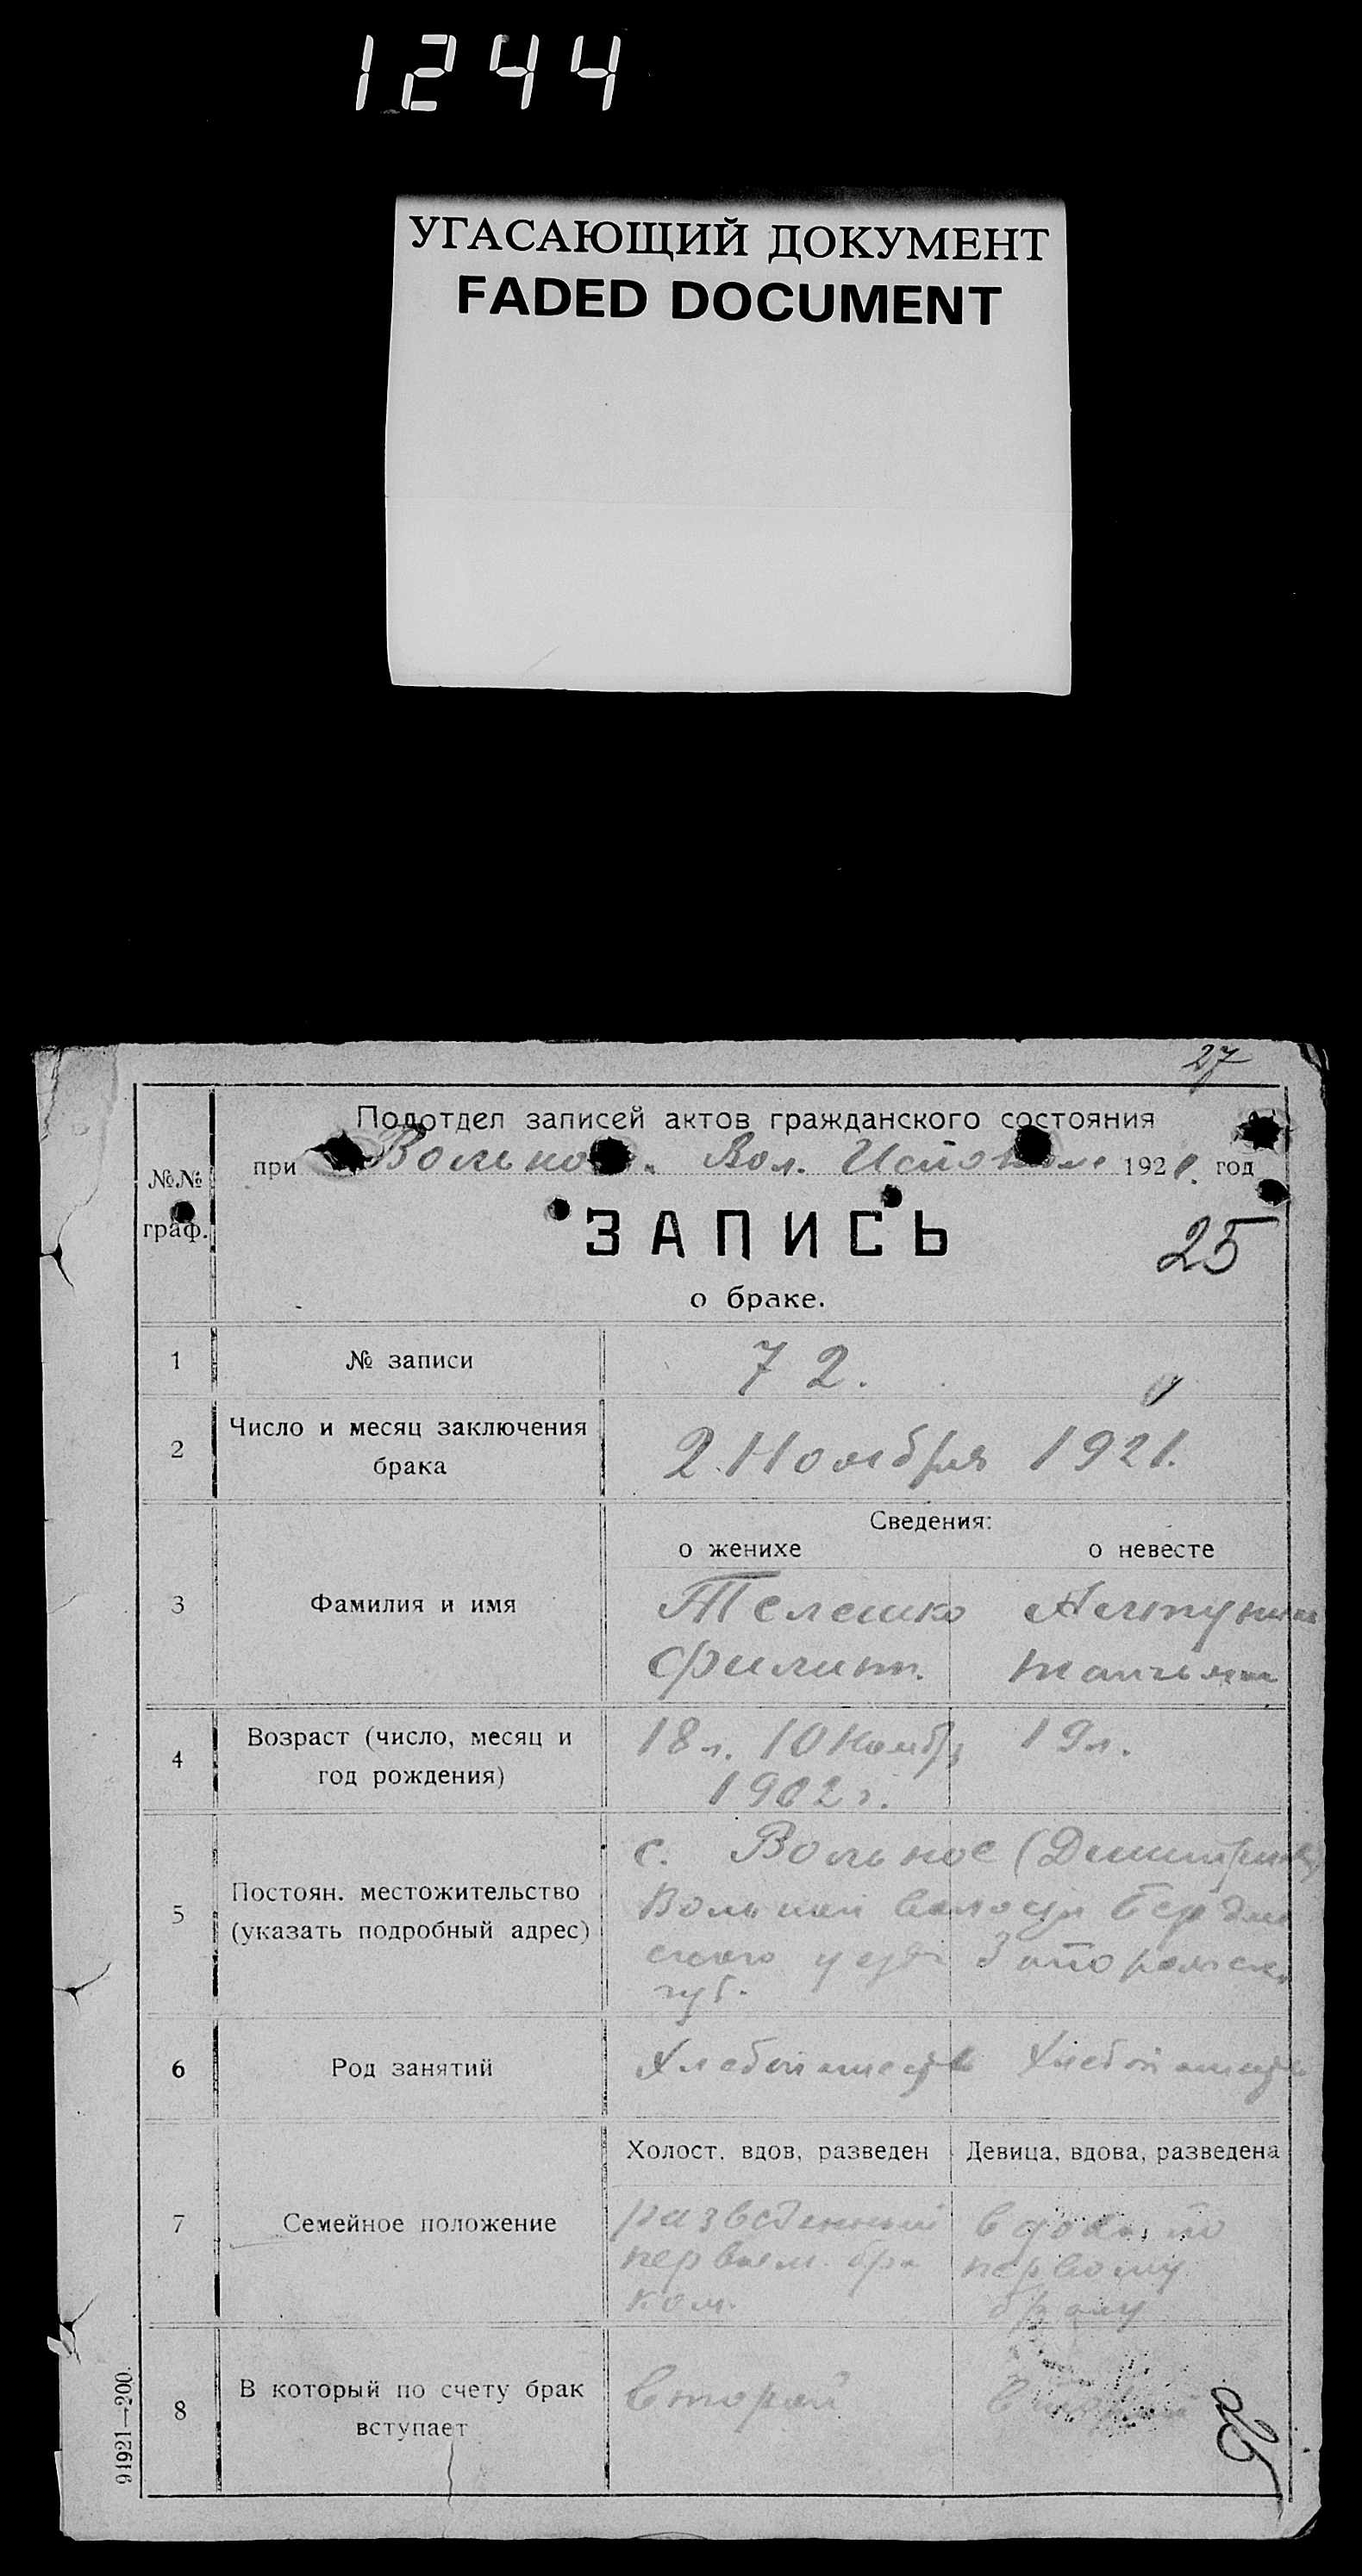 1244
УГАСАЮЩИЙ ДОКУМЕНТ
FADED DOCUMENT
27
Подотдел записей актов гражданского состояния
№№ граф.
при Вол. 1921. год
ЗАПИСЬ
25
о браке.
1 № записи 72.
2 Число и месяц заключения брака
2 Ноября 1921.
Сведения:
о женихе о невесте
3 Фамилия и имя
Телешко
Филипп.
4 Возраст (число, месяц и год рождения)
18 л. 10 Ноябр 19 л.
1902 г.
5 Постоян. местожительство (указать подробный адрес)
с. Вольное
губ.
6 Род занятий
Холост, вдов, разведен Девица, вдова, разведена
7 Семейное положение
разведенный вдова по
первым бра первому
ком. браку
8 В который по счету брак вступает
второй
91921—200.